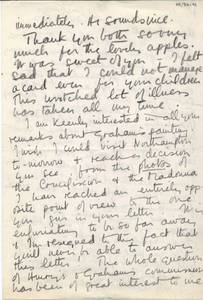 immediately. It sounds nice.
Thank you both so very
much for the lovely apples.
It was sweet of you. I felt
sad that I could not manage
a card even for your children
This wretched lot of illness
has taken all my time.
I am keenly interested in all your
remarks about Grahams painting
I wish I could visit Northampton
to-morrow & reach a decision
You see, from the photos of
the Crucifixion & the Madonna
I have reached an entirely opp
site point of view to the one
you give in your letter. It is
infuriating to be so far away
& I'm resigned to the fact that
you'll never be able to answer
this letter. The whole question
of Henry's & Grahams commissions
has been of great interest to me